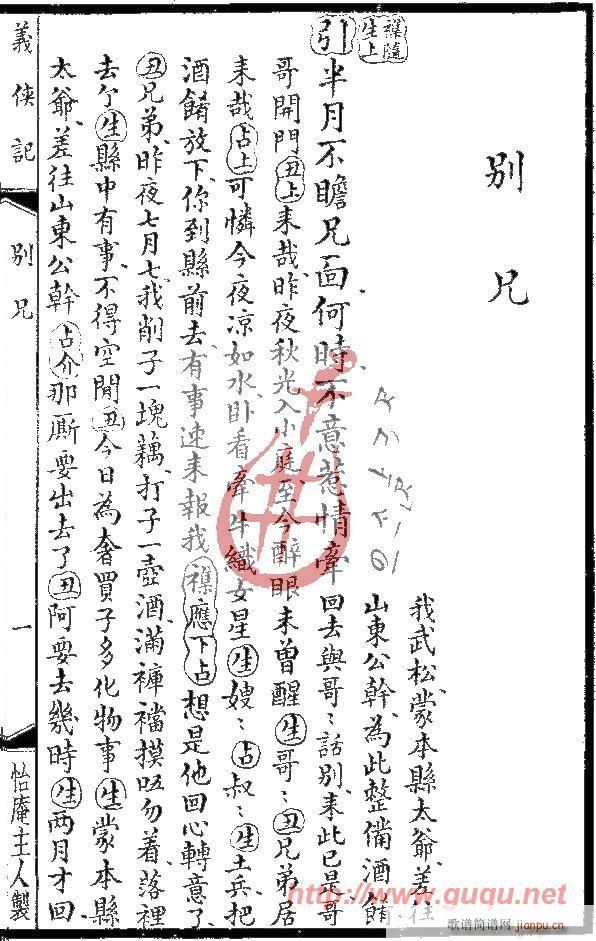 別兄
雜隨生上
引半月不瞻兄面何時不意惹情牽
我武松、蒙本縣太爺、差往
山東公幹、為此整備酒餚
回去與哥〻話別、来此已是哥
哥開門丑上来哉、昨夜秋光入小庭至今醉眼未曾醒生哥〻丑兄弟居
来哉占上可憐今夜凉如水、卧看牽牛織女星生嫂〻占叔〻生土兵、把
酒餚放下、你到縣前去、有事速来報我雜應下占想是他回心轉意了
丑兄弟、昨夜七月七、我削子一塊藕、打子一壺酒、滿褲襠摸唔勿着、落裡
去生縣中有事、不得空閒丑今日為奢買子多化物事生蒙本縣
太爺、差往山東公幹占介那厮要出去了丑阿要去幾時生两月才回
義俠記
別兄
一
怡庵主人製
http://www.guqu.net
歌谱简谱网
jianpu.cn